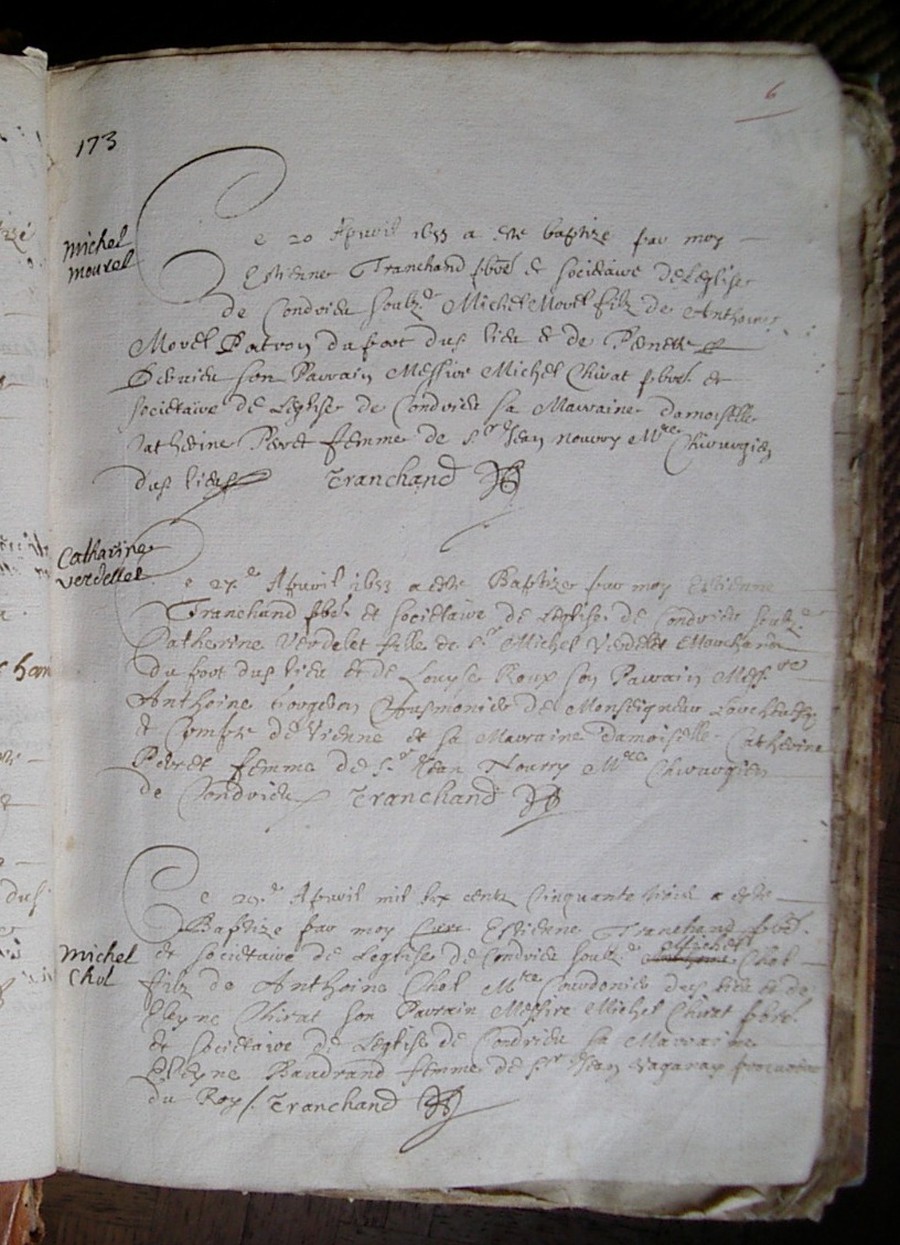 6
173
Michel
Mourel
Ce 20 Apvril 1653 a este baptize par moy
Estienne Tranchand pbre et societaire de Leglise
de Condrieu soubz.ne Michel Morel filz de Anthoine
Morel Patron du port dud lieu et de Pernette
son Parrain Messire Michel Chirat pbre et
societaire de Leglise de Condrieu sa Marraine damoiselle
Catherine Peret femme de sr Jean nourry Mre Chirurgien
dud lieu Tranchand
Catharine
verdellet
Ce 27e Apvril 1653 a este Baptize par moy Estienne
Tranchand pbre et societaire de Leglise de Condrieu soubz.ne
Catherine Verdelet fille de sr Michel Verdelet Marchand
du port dud lieu et de Louyse Roux son Parrain Messre
Anthoine Ausmonier de Monseigneur Larchevesq
et Compte de Vienne et sa Marraine damoiselle Catherine
Peret femme de sr Jean Nourry Mre Chirurgien
de Condrieu Tranchand
Michel
Chol
Ce 29e Apvril mil six centz cinquante trois a este
Baptize par moy Estienne Tranchand pbre
et societaire de Leglise de Condrieu soubz.ne Michel Chol
filz de Anthoine Chol Mtre Courdonier dud lieu et de
Eleyne Chirat son Parrain Messire Michel Chirat pbre
et societaire de Leglise de Condrieu sa Marraine
Eleyne Baudrand femme de sr Jean Vaganay procureur
du Roy Tranchand